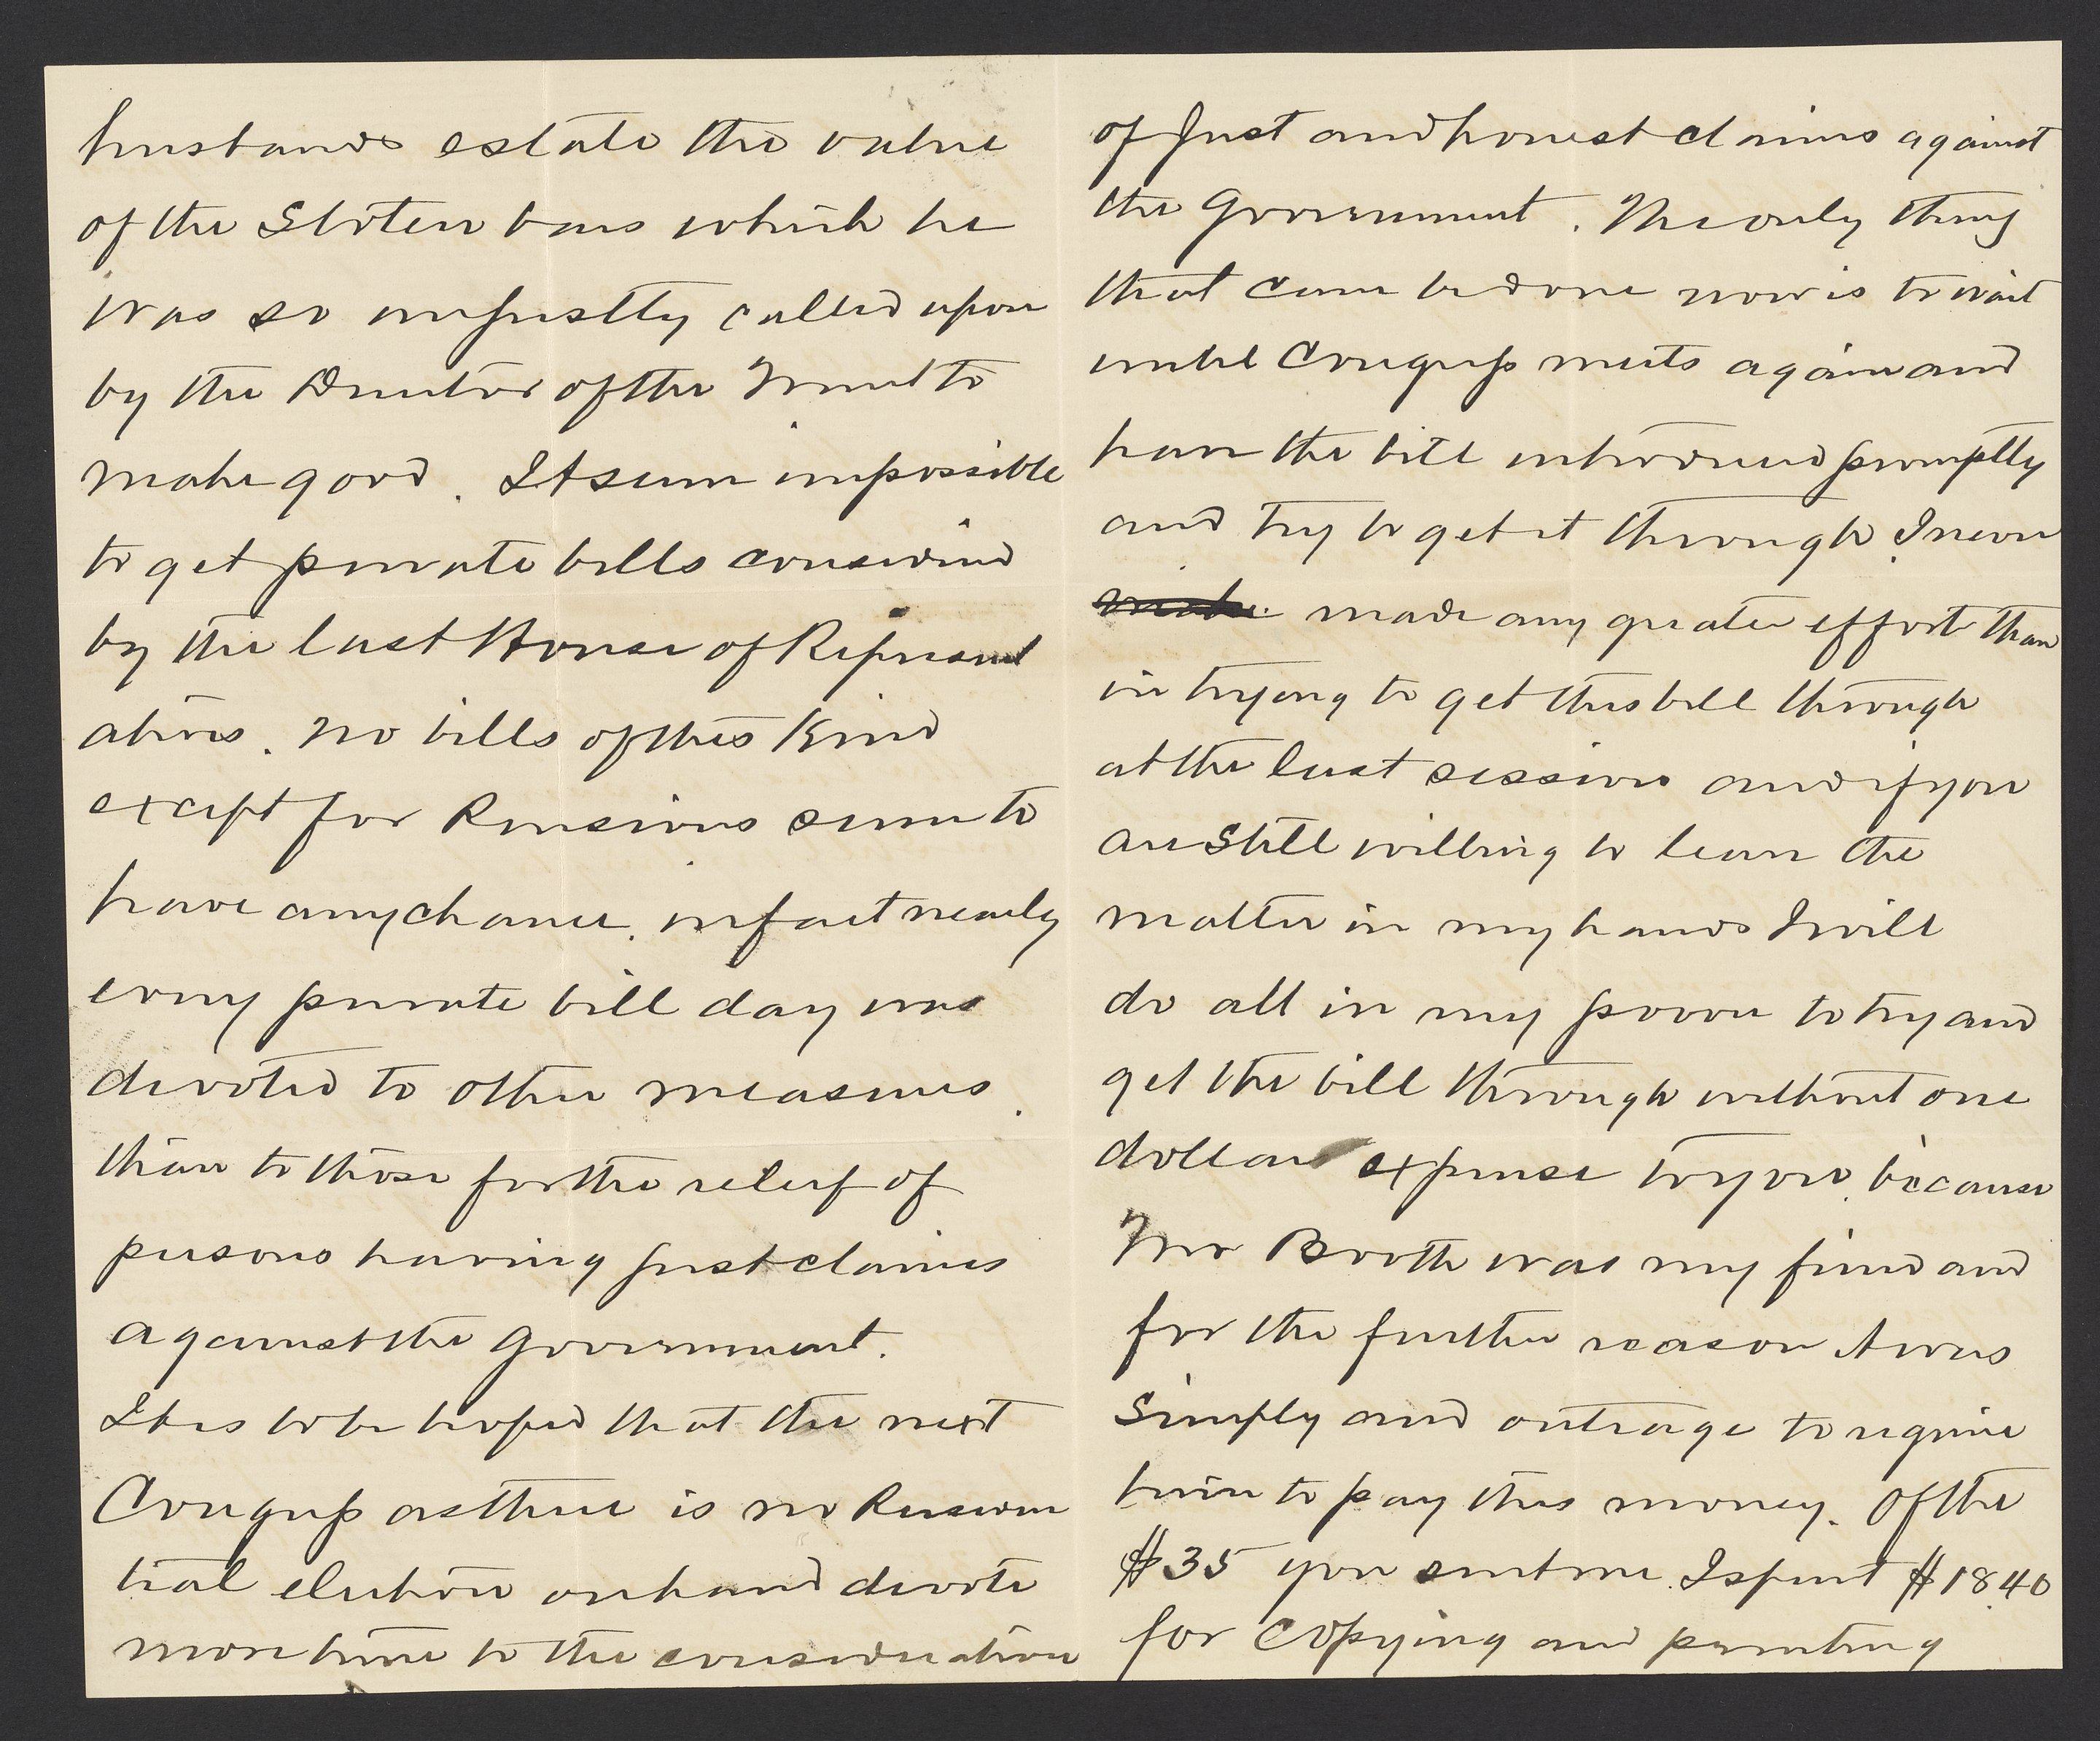 husbands estate the value
of the Stolen bars which he
was so unjustly called upon
by the Director of the Mint to
make good. It seem impossible
to get private bills considered
by the last House of Represent
atives. No bills of this Kind
except for Pensions seem to
have any chance. in fact nearly
every private bill day was
devoted to other measures.
than to those for the relief of
persons having just claims
against the government.
It is to be hoped that the next
Congress as there is no Presiden
tial election on hand devote
more time to the consideration
of just and honest claims against
the government. The only thing
that can be done now is to wait
until Congress meets again and
have the bill introduced promptly
and try to get it through. I never
made any greater effort than
in trying to get this bill through
at the last session and if you
are still willing to leave the
matter in my hands I will
do all in my power to try and
get the bill through without one
dollar expense to you. because
Mr Booth was my friend and
for the further reason it was
simply and outrage to require
him to pay this money. Of the
$35 you sent me. I spent $18.40
for copying and printing